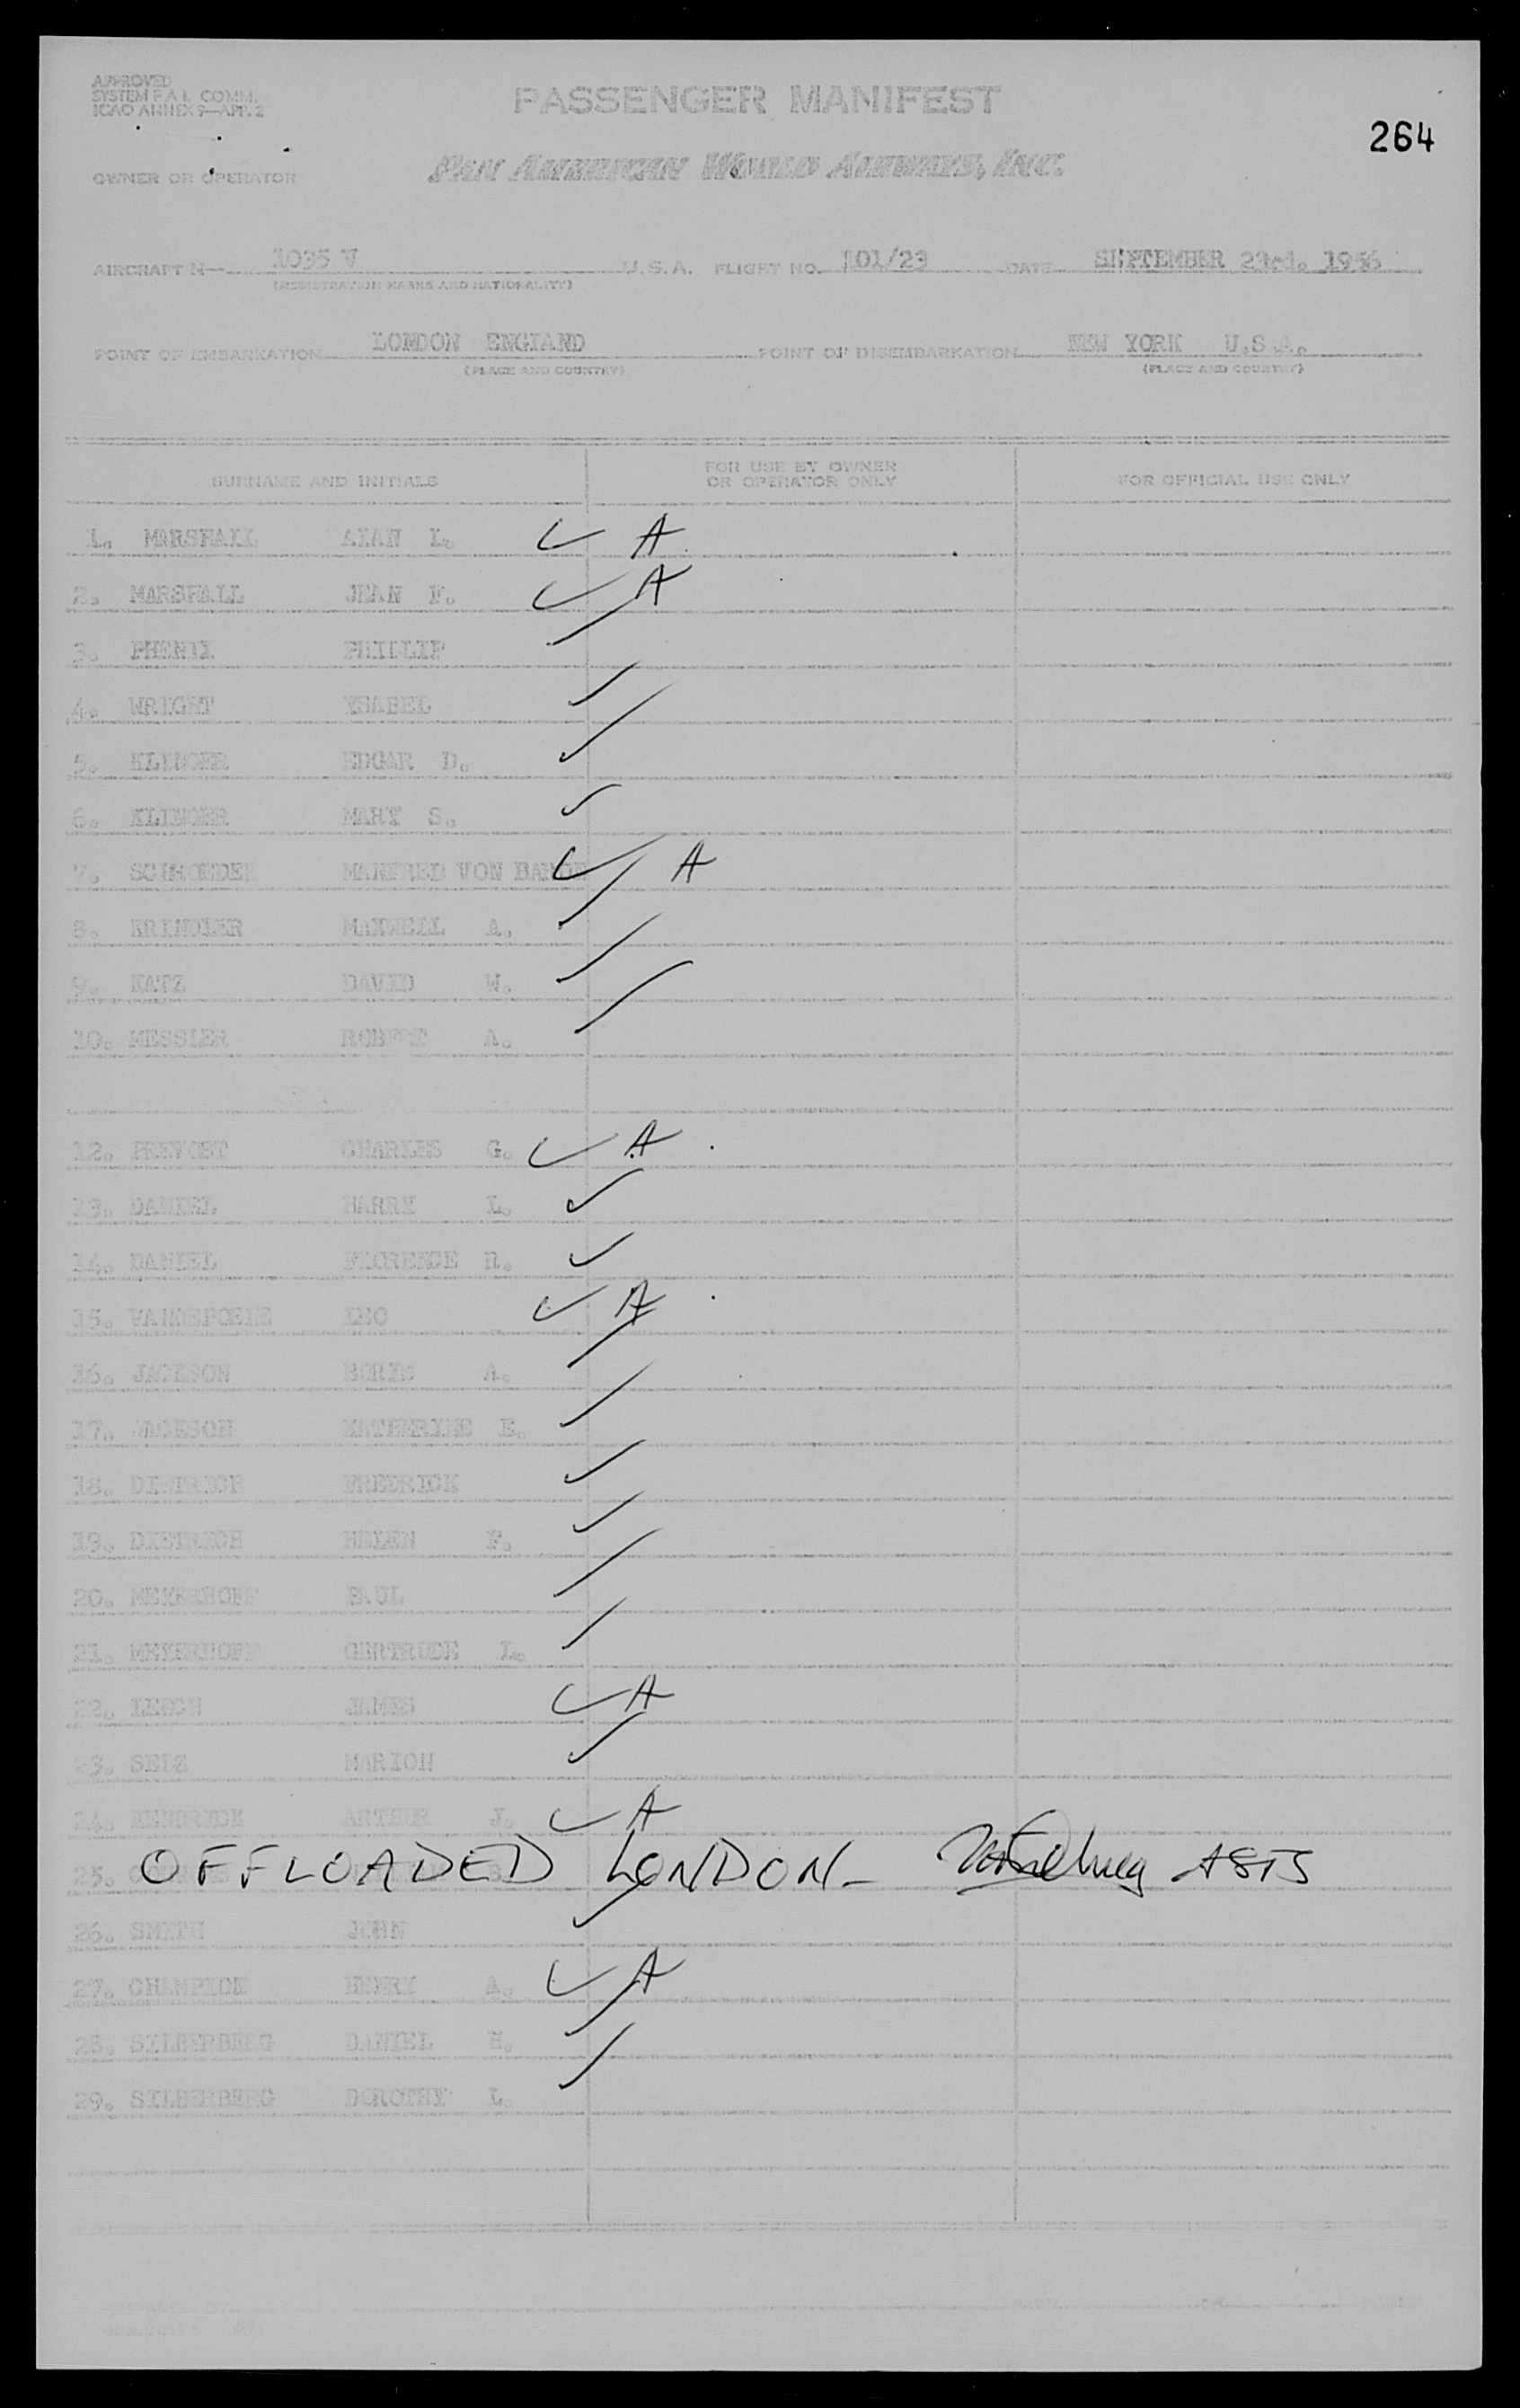 APPROVED
SYSTEM F.A.L. COMM.
ICAO ANNEX 9—APP. 2
PASSENGER MANIFEST
264
OWNER OR OPERATOR PAN AMERICAN WORLD AIRWAYS, INC.
AIRCRAFT N— 1035 V U.S.A. FLIGHT NO. 101/23 DATE SEPTEMBER 23rd. 1956
(REGISTRATION MARKS AND NATIONALITY)
POINT OF EMBARKATION LONDON ENGLAND POINT OF DISEMBARKATION NEW YORK U.S.A.
(PLACE AND COUNTRY) (PLACE AND COUNTRY)
SURNAME AND INITIALS FOR USE BY OWNER OR OPERATOR ONLY FOR OFFICIAL USE ONLY
1. MARSHALL ALAN L. ✓ A
2. MARSHALL JEAN F. ✓ A
3. PHILLIP ✓
4. WRIGHT YSABEL ✓
5. KLINGER EDGAR D. ✓
6. KLINGER MARY S. ✓
7. SCHROEDER MANFRED VON BARON ✓ A
8. KRINDLER MAXWELL A. ✓
9. KATZ DAVID W. ✓
10. MESSLER ROBERT A. ✓
12. PREVOST CHARLES G. ✓ A
13. DANIEL HARRY L. ✓
14. DANIEL FLORENCE R. ✓
15. LEO ✓ A
16. JACKSON A. ✓
17. JACKSON KATHERINE E. ✓
18. DIETRICH FREDRICK ✓
19. DIETRICH HELEN F. ✓
20. MEYERHOFF PAUL ✓
21. MEYERHOFF GERTRUDE L. ✓
22. LEECH JAMES ✓ A
23. SELZ MARION ✓
24. KENDRICK ARTHUR J. ✓ A
25. OFFLOADED LONDON —
26. SMITH JOHN ✓
27. CHAMPION HENRY A. ✓ A
28. SILBERBERG DANIEL H. ✓
29. SILBERBERG DOROTHY L. ✓